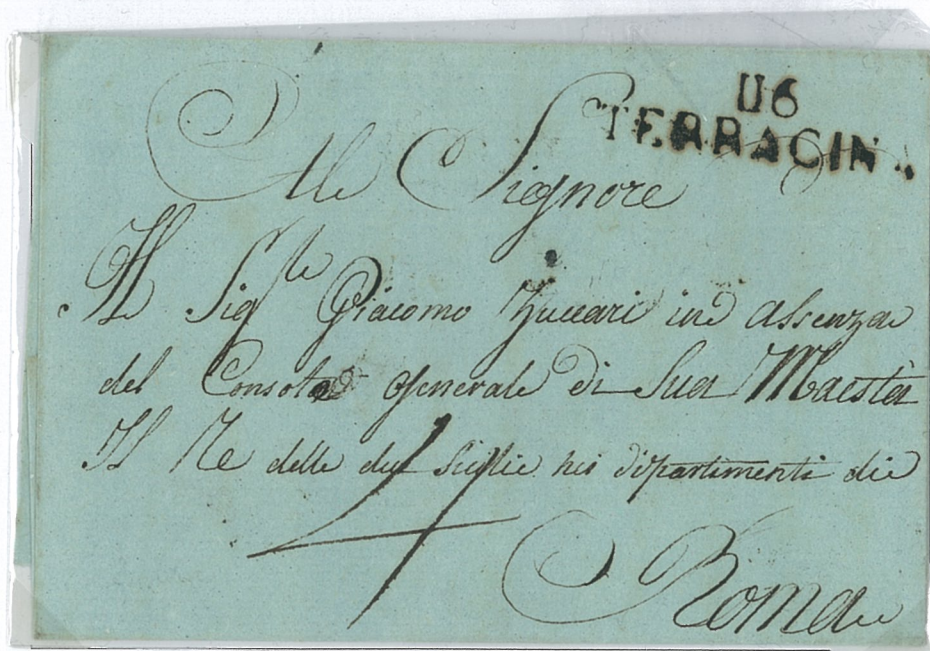 116
TERRACINA
Al Signore
Il Sig.le Giacomo Zuccari in assenza
del Console Generale di Sua Maestà
Il Re delle due Sicilie nei dipartimenti di
4
Roma